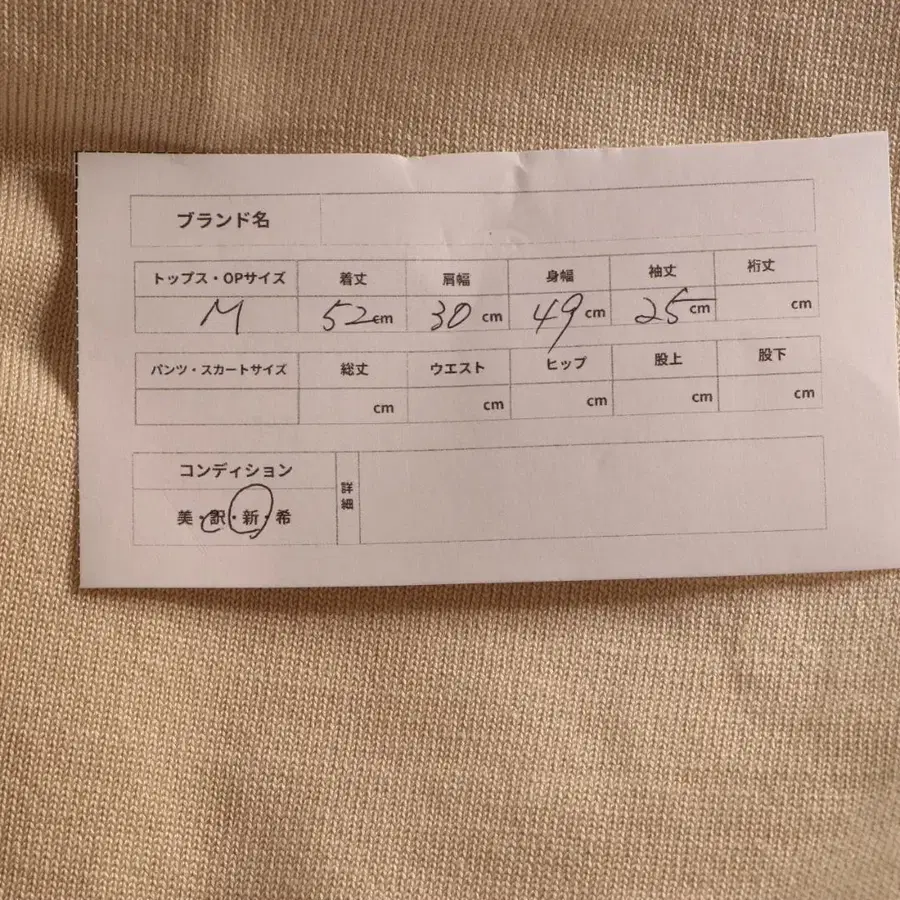 ブランド名
トップス・OPサイズ 着丈 肩幅 身幅 袖丈 裄丈
M 52cm 30 cm 49 cm 25 cm cm
パンツ・スカートサイズ 総丈 ウエスト ヒップ 股上 股下
cm cm cm cm cm
コンディション
詳細
美・訳・新・希